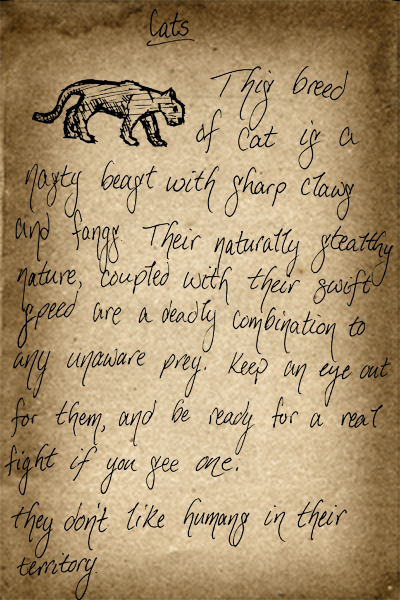 Cats
This breed
of cat is a
nasty beast with sharp claws
and fangs. Their naturally stealthy
nature, coupled with their swift
speed are a deadly combination to
any unaware prey. Keep an eye out
for them, and be ready for a real
fight if you see one.
they don't like humans in their
territory